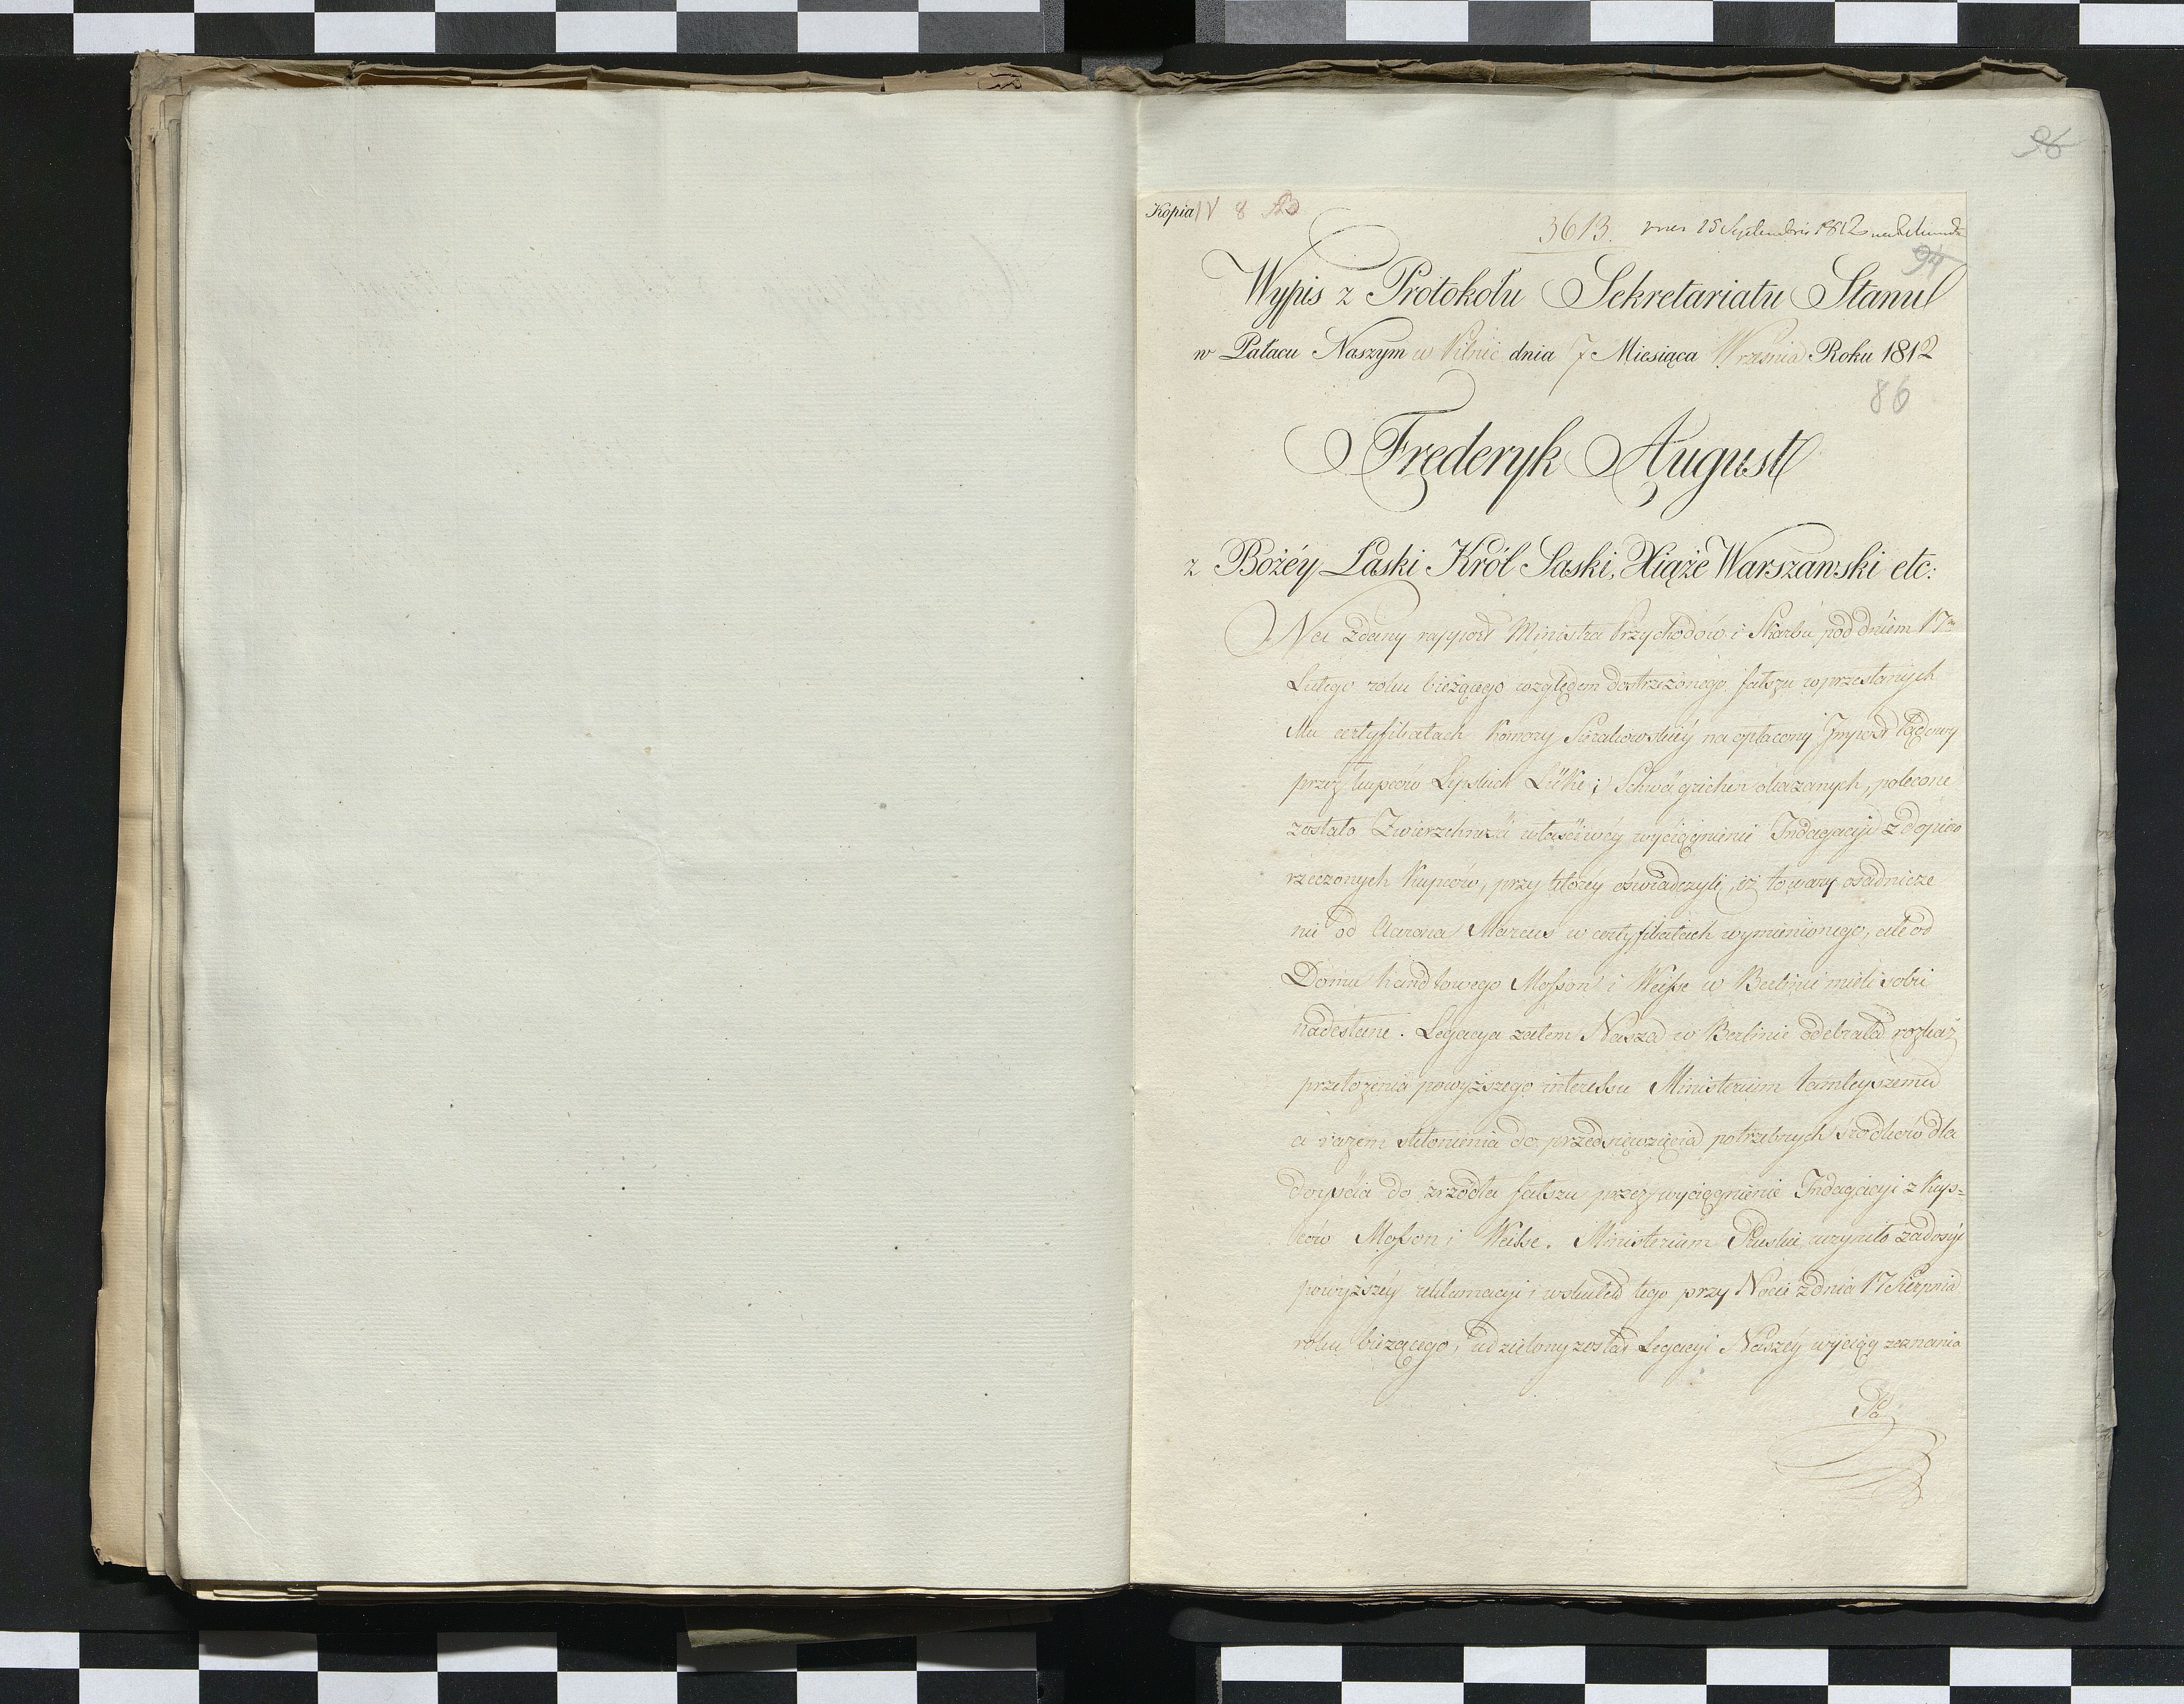 96
Kopia IV 8
3613. vnes 15 Septembris 1812
94
Wypis z Protokołu Sekretariatu Stanu
w Pałacu Naszym w Pilnic dnia 7 Miesiąca Września Roku 1812
86
Fręderyk August
z Bożéy Łaski Król Saski, Xiąże Warszawski etc:
Na zdany rapport Ministra Przychodów i Skarbu pod dniem 17m
Lutego roku bieżącego względem dostrzeżonego fałszu w przesłanych
Mu certyfikatach Komory Sierakowskiéy na opłacony Impost lądowy
przez kupców Lipskich Lücke i Schwägrichen okazanych, polecone
zostało Zwierzchności właściwéy wyciągnienie Indagacyi z dopiero
rzeczonych Kupców, przy któréy oświadczyli, iż towary osadnicze
nie od Aarona Marcus w certyfikatach wymienionego, ale od
Domu handlowego Mosson i Weisse w Berlinie mieli sobie
nadesłane. Legacya zatem Nasza w Berlinie odebrała rozkaz
przełożenia powyższego interessu Ministerium tamteyszemu
a razem skłonienia do przedsięwzięcia potrzebnych środków dla
doyścia do źrzódła fałszu przez wyciągnienie Indagacyi z Kup=
ców Mosson i Weisse. Ministerium Pruskie uczyniło zadosyć
powyższéy reklamacyi i wskutek tego przy Nocie z dnia 17 Sierpnia
roku bieżącego, udzielony został Legacyi Naszéy wyciąg zeznania